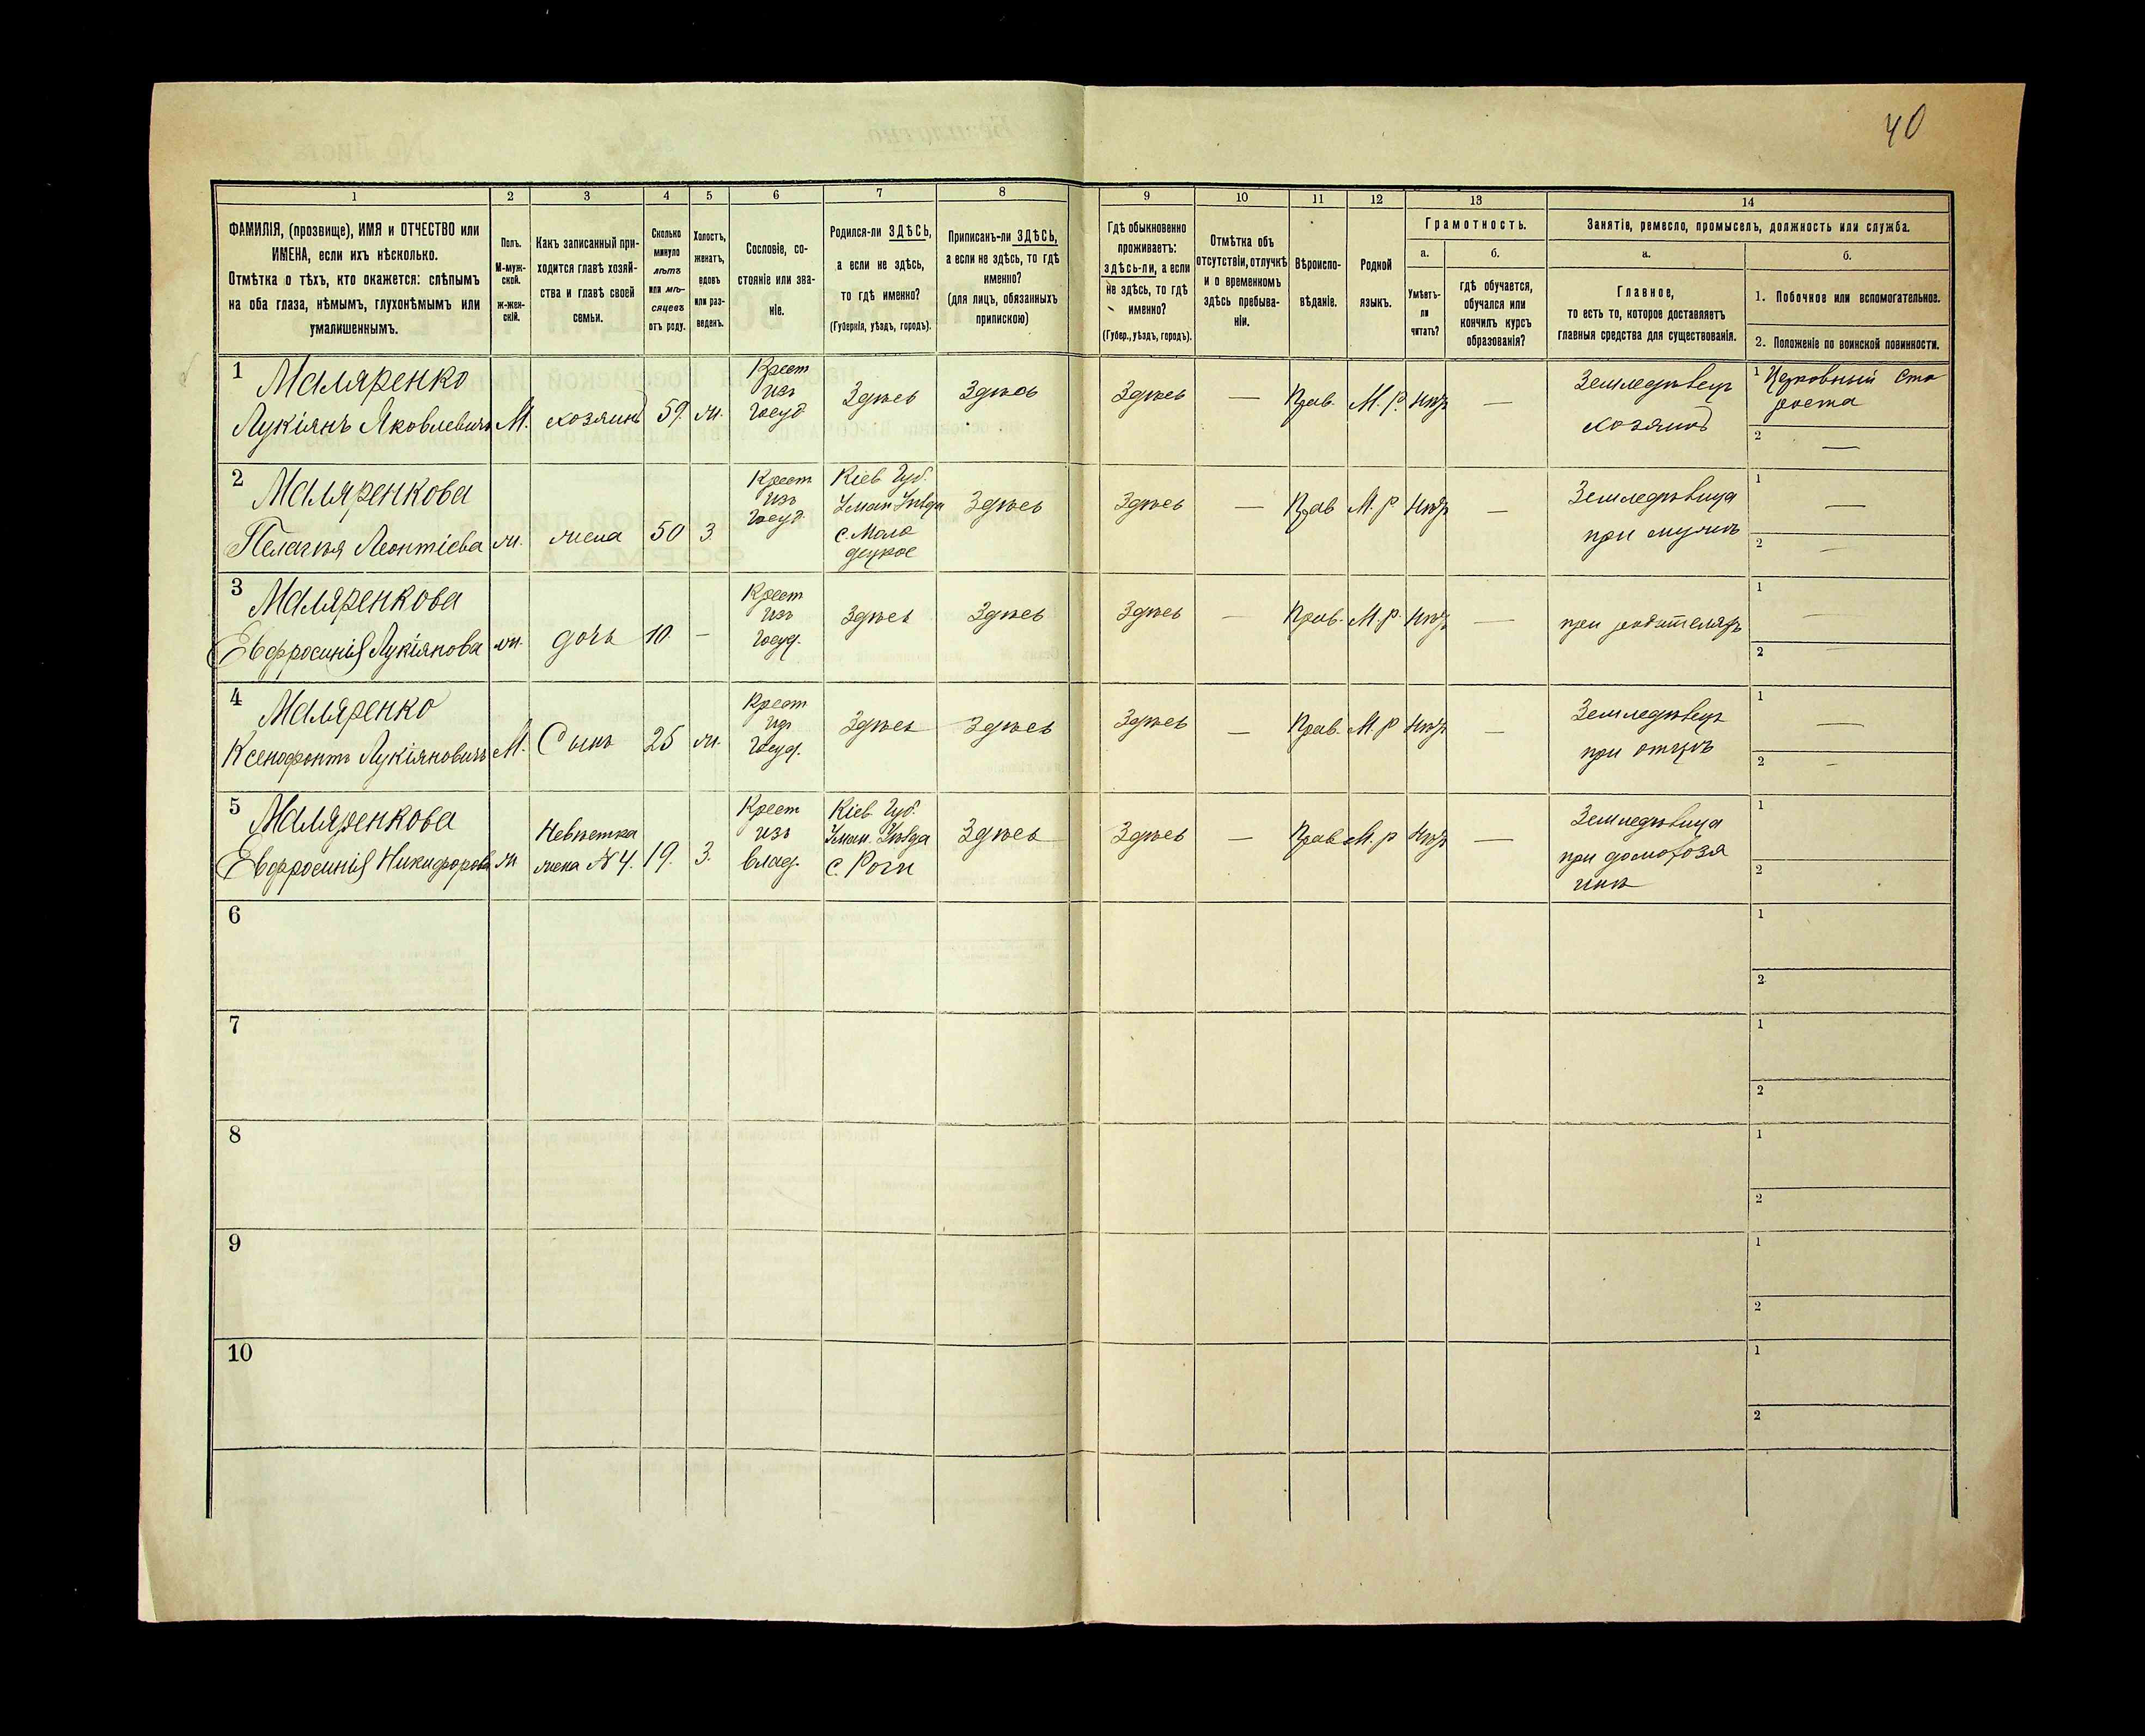 40
1
2
3
4
5
6
7
8
9
10
11
12
13
14
ФАМИЛІЯ, (прозвище), ИМЯ и ОТЧЕСТВО или
ИМЕНА, если ихъ нѣсколько.
Отмѣтка о тѣхъ, кто окажется: слѣпымъ
на оба глаза, нѣмымъ, глухонѣмымъ или
умалишеннымъ.
Полъ.
М-муж-
ской.
ж-жен-
скій.
Какъ записанный при-
ходится главѣ хозяй-
ства и главѣ своей
семьи.
Сколько
минуло
лѣтъ
или мѣ-
сяцевъ
отъ роду.
Холостъ,
женатъ,
вдовъ
или раз-
веденъ.
Сословіе, со-
стояніе или зва-
ніе.
Родился-ли ЗДѢСЬ,
а если не здѣсь,
то гдѣ именно?
(Губернія, уѣздъ, городъ).
Приписанъ-ли ЗДѢСЬ,
а если не здѣсь, то гдѣ
именно?
(для лицъ, обязанныхъ
припискою)
Гдѣ обыкновенно
проживаетъ:
здѣсь-ли, а если
не здѣсь, то гдѣ
именно?
(Губер., уѣздъ, городъ).
Отмѣтка объ
отсутствіи, отлучкѣ
и о временномъ
здѣсь пребыва-
ніи.
Вѣроиспо-
вѣданіе.
Родной
языкъ.
Грамотность.
а.
Умѣетъ-
ли
читать?
б.
гдѣ обучается,
обучался или
кончилъ курсъ
образованія?
Занятіе, ремесло, промыселъ, должность или служба.
а.
Главное,
то есть то, которое доставляетъ
главныя средства для существованія.
б.
1. Побочное или вспомогательное.
2. Положеніе по воинской повинности.
1
Маляренко
Лукіянъ Яковлевичъ
М.
хозяинъ
59.
ж.
Крест
изъ
госуд.
Здѣсь
Здѣсь
Здѣсь
—
Прав.
М. Р.
Нѣтъ
—
Земледѣлецъ
хозяинъ
1 Церковный Ста
роста
2 —
2
Маляренкова
Пелагѣя Леонтіева
ж.
жена
50
З.
Крест
изъ
госуд.
Кіев Губ.
Уман Уѣзда
с. Моло
децкое
Здѣсь
Здѣсь
—
Прав
М. р
Нѣтъ
—
Земледѣлица
при мужѣ
1 —
2 —
3
Маляренкова
Евфросинія Лукіянова
ж.
дочь
10.
—
Крест
изъ
госуд.
Здѣсь
Здѣсь
Здѣсь
—
Прав.
М. р.
Нѣтъ
—
при родителяхъ
1 —
2 —
4
Маляренко
Ксенофонтъ Лукіяновичъ
М.
Сынъ
25
ж.
Крест
изъ
госуд.
Здѣсь
Здѣсь
Здѣсь
—
Прав.
М. р
Нѣтъ
—
Земледѣлецъ
при отцѣ
1 —
2 —
5
Маляренкова
Евфросинія Никифорова
ж
Невѣстка
жена № 4.
19.
З.
Крест
изъ
влад.
Кіев Губ.
Уман. Уѣзда
с. Роги
Здѣсь
Здѣсь
—
Прав
М. р
Нѣтъ
—
Земледѣлица
при домохозя
инѣ
1
2
6
1
2
7
1
2
8
1
2
9
1
2
10
1
2